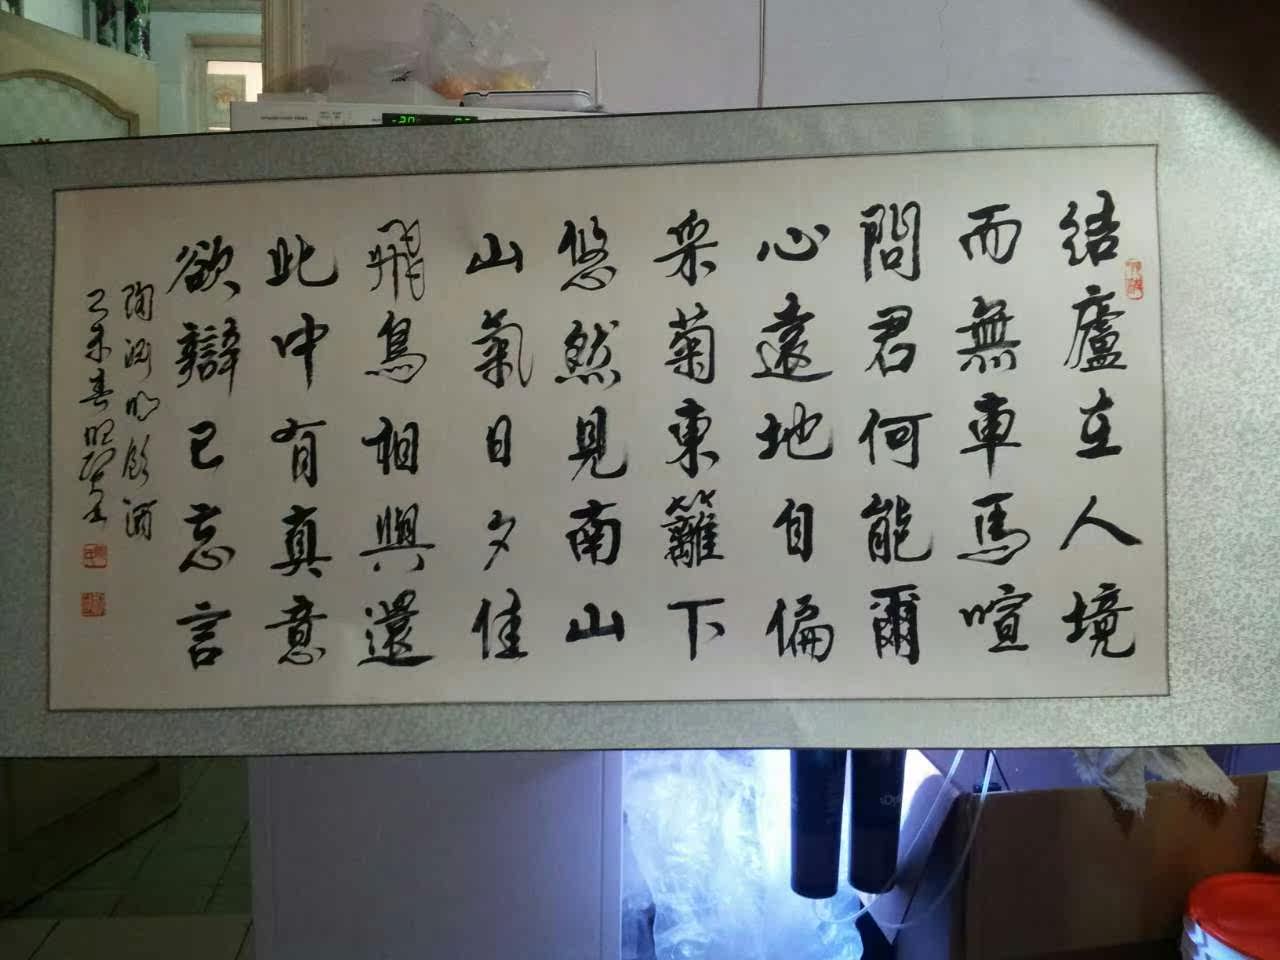 结廬在人境
而無車馬喧
問君何能爾
心遠地自偏
采菊東籬下
悠然見南山
山氣日夕佳
飛鳥相與還
此中有真意
欲辯已忘言
陶渊明飲酒
乙未春